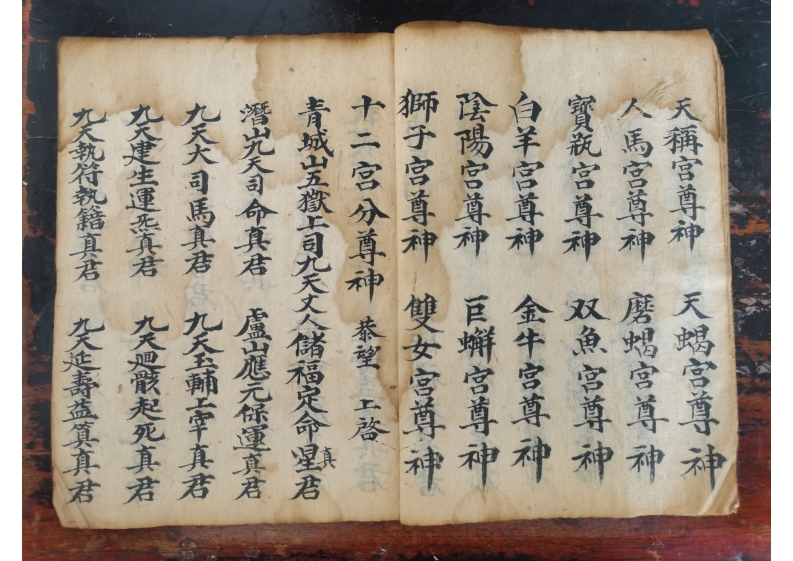 天稱宮尊神 天蝎宮尊神
人馬宮尊神 磨蝎宮尊神
寳瓶宮尊神 双魚宮尊神
白羊宮尊神 金牛宮尊神
陰陽宮尊神 巨蠏宮尊神
獅子宮尊神 雙女宮尊神
十二宮分尊神 恭望 上啓
青城山五嶽上司九天丈人儲福定命星真君
潛山九天司命真君 盧山應元保運真君
九天大司馬真君 九天玉輔上宰真君
九天建生運炁真君 九天廻骸起死真君
九天執符執籍真君 九天延壽益筭真君